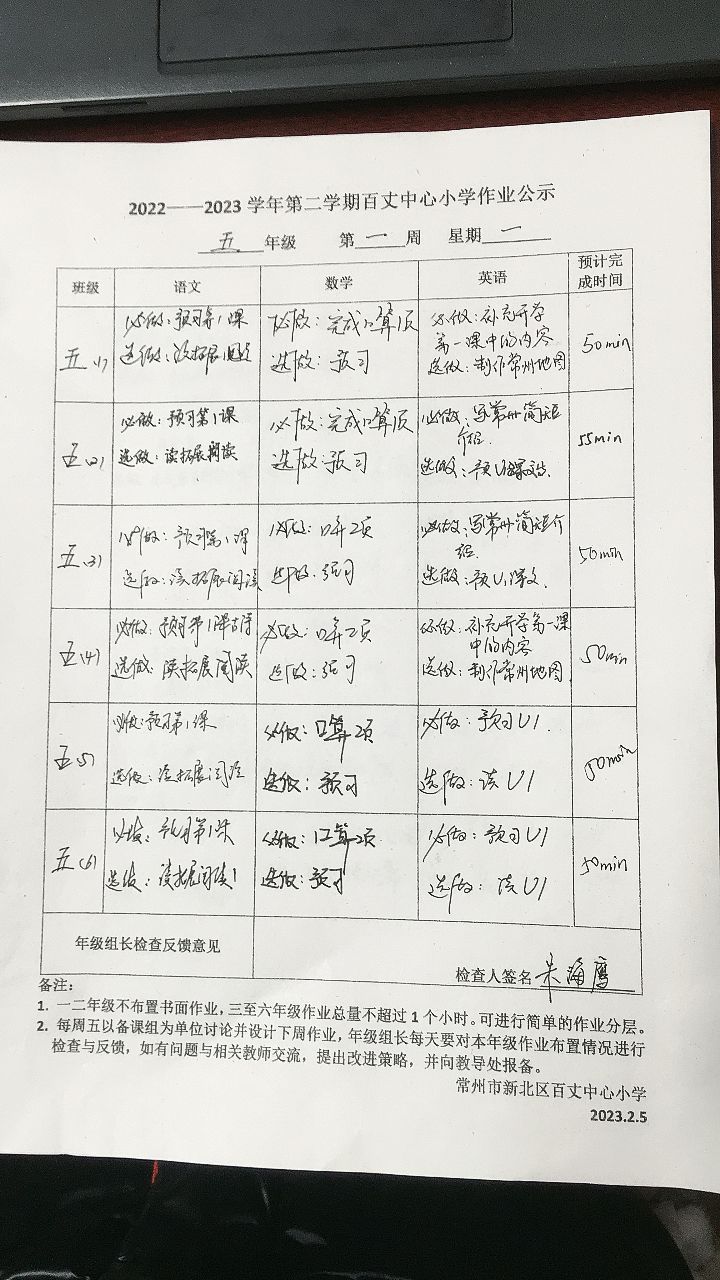 2022——2023 学年第二学期百丈中心小学作业公示
五 年级 第 一 周 星期 一
班级 语文 数学 英语 预计完成时间
五(1) 必做：预习第1课 必做：完成口算1页 必做：补充开学 50min
第一课中的内容
选做：读拓展 选做：预习 选做：制作常州地图
五(2) 必做：预习第1课 必做：完成口算1页 必做：写常州简短 55min
介绍
选做：读拓展阅读 选做：预习 选做：预U1课文
五(3) 必做：预习第1课 必做：口算2页 必做：写常州简短介 50min
绍
选做：读拓展阅读 选做：预习 选做：预U1课文
五(4) 必做：预习第1课古诗 必做：口算2页 必做：补充开学第一课 50min
中的内容
选做：读拓展阅读 选做：预习 选做：制作常州地图
五(5) 必做：预习第1课 必做：口算2页 必做：预习U1 50min
选做：读拓展阅读 选做：预习 选做：读U1
五(6) 必做：预习第1课 必做：口算2页 必做：预习U1 50min
选做：读拓展阅读 选做：预习 选做：读U1
年级组长检查反馈意见
检查人签名 朱海鹰
备注：
1. 一二年级不布置书面作业，三至六年级作业总量不超过 1 个小时。可进行简单的作业分层。
2. 每周五以备课组为单位讨论并设计下周作业，年级组长每天要对本年级作业布置情况进行
检查与反馈，如有问题与相关教师交流，提出改进策略，并向教导处报备。
常州市新北区百丈中心小学
2023.2.5